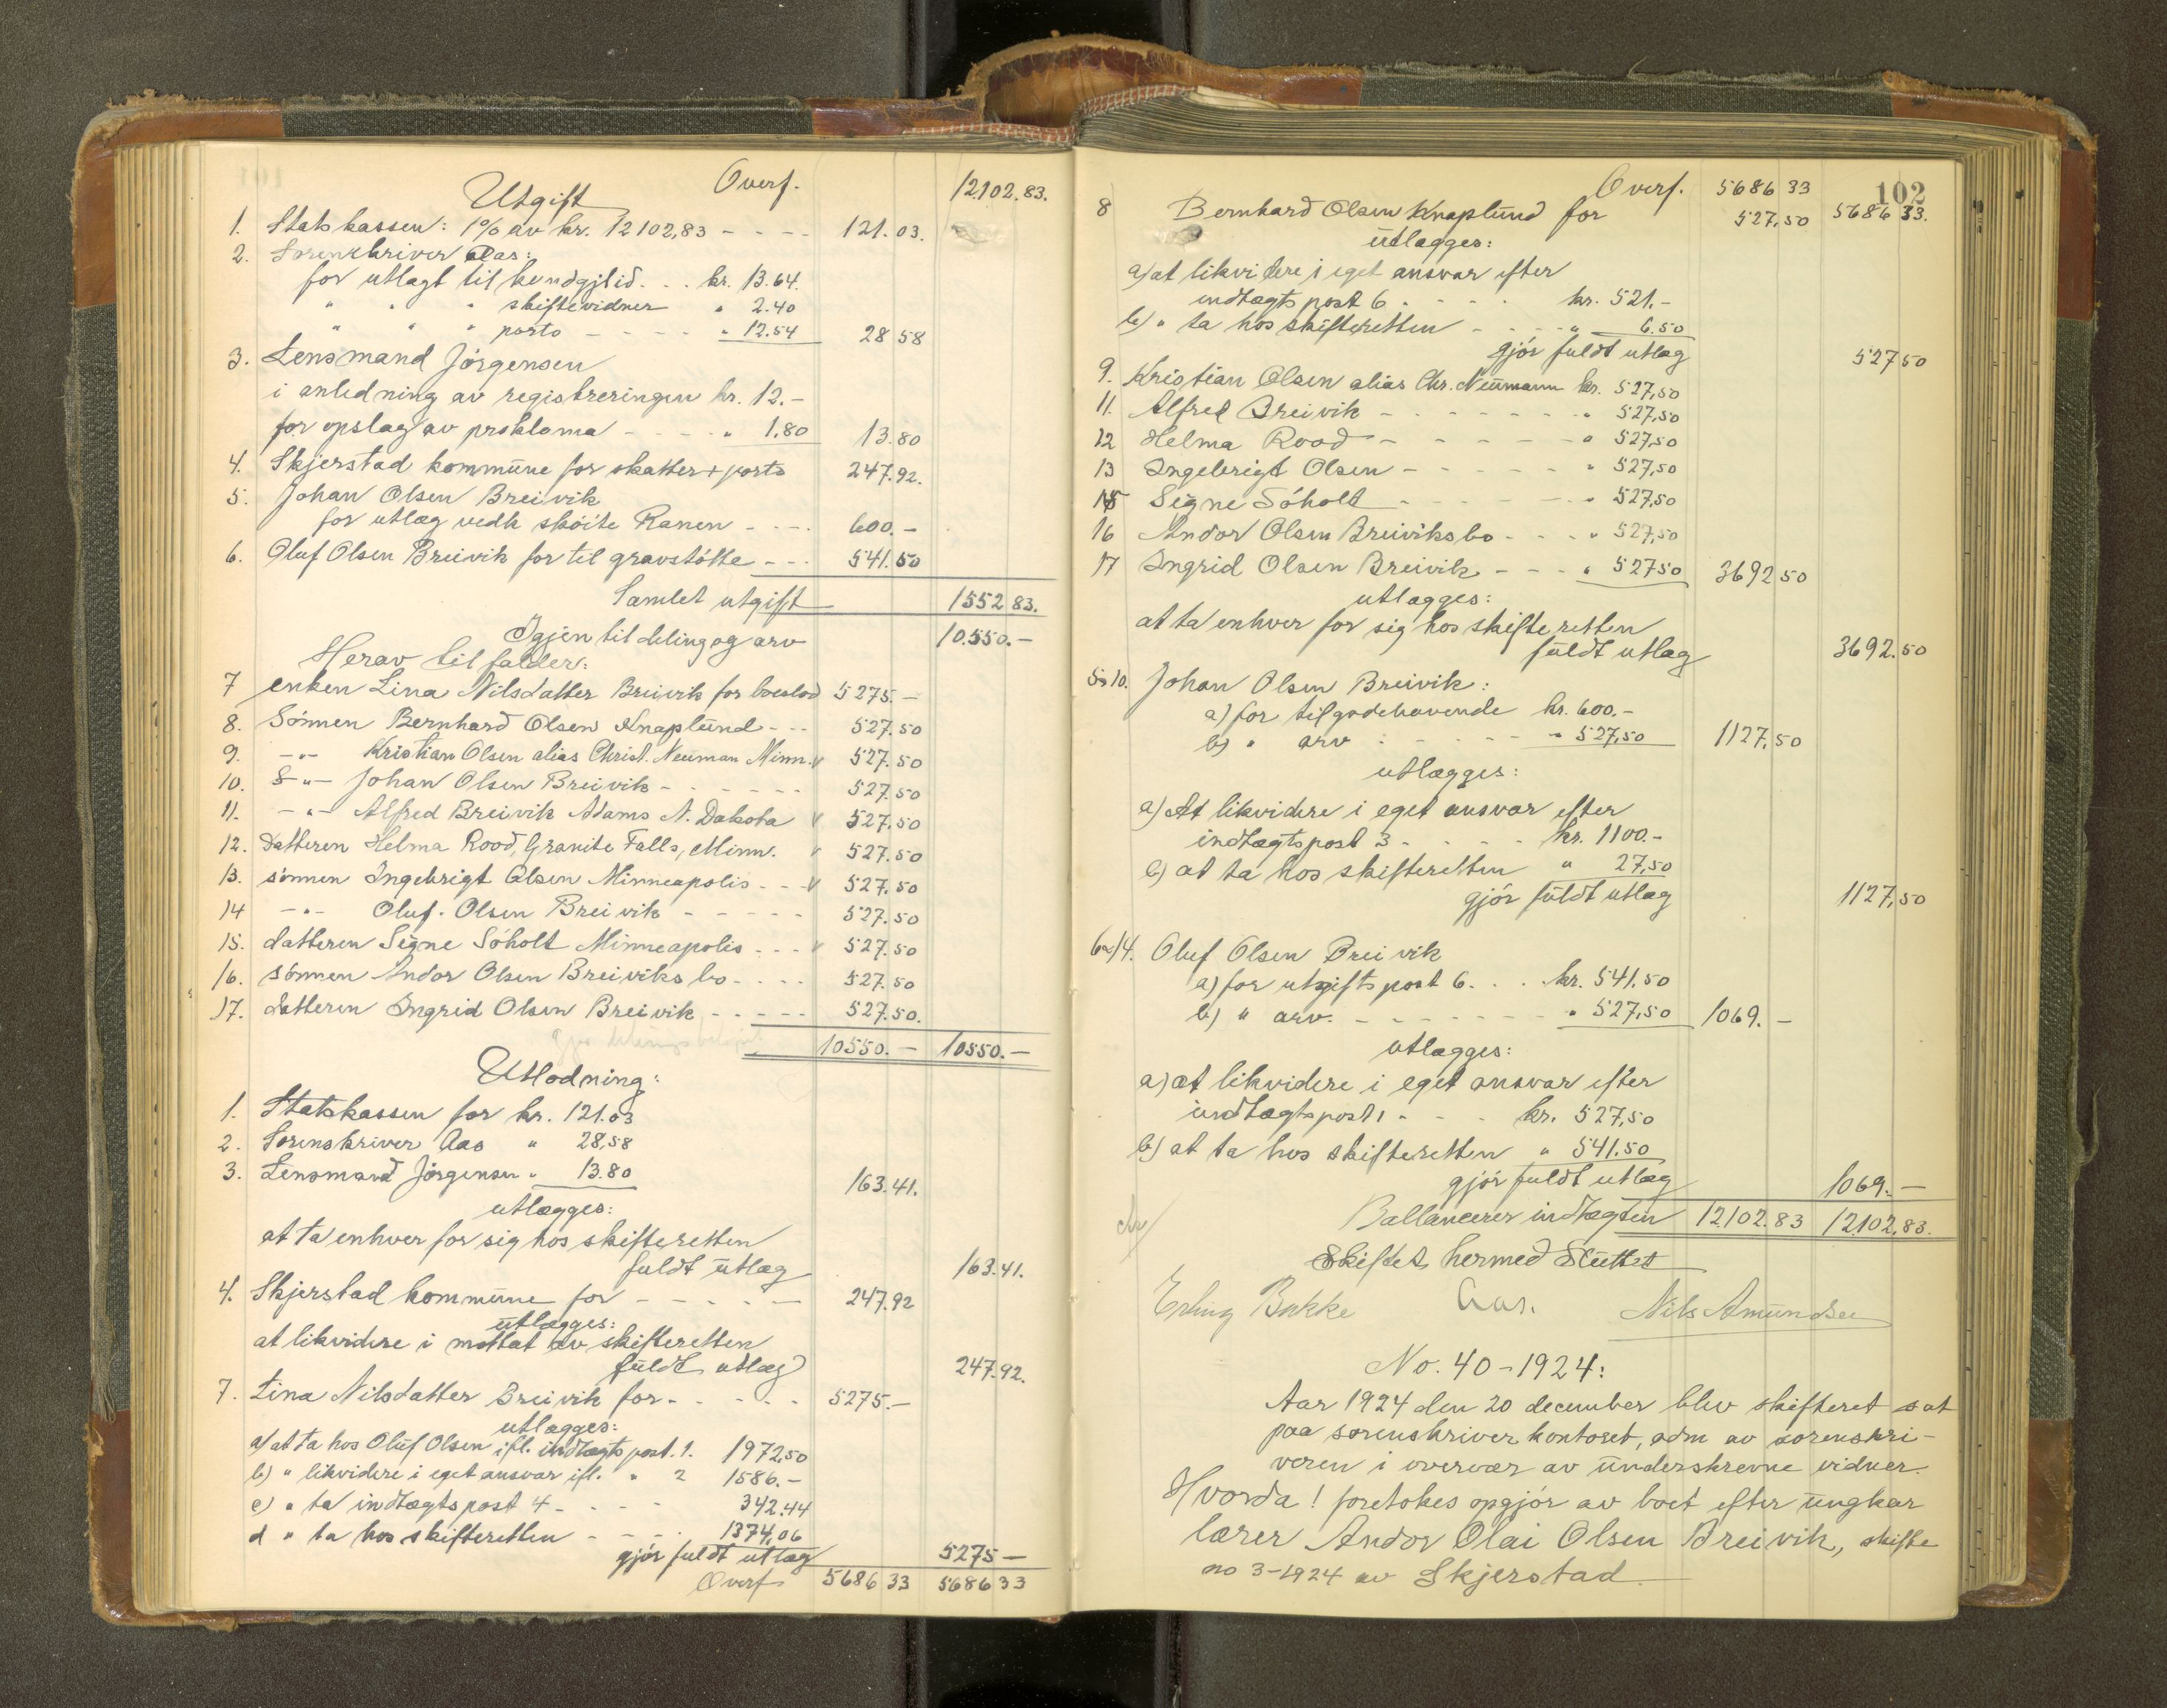 Overf. 12102.83.
Utgift
1. Statskassen: 1% av kr. 12102,83 - - - - 121.03.
2. Sorenskriver Aas:
for utlagt til kundgj. tid. . . kr. 13.64.
" " " skiftevidner " 2.40
" " " porto - - - - " 12.54 28 58
3. Lensmand Jørgensen
i anledning av registreringen kr. 12.-
for opslag av proklama - - - - " 1.80 13.80
4. Skjerstad kommune for skatter + porto 247.92.
5. Johan Olsen Breivik
for utlæg vedk skøite Ranen - - - - 600.-
6. Oluf Olsen Breivik for til gravstøtte - - - 541.50
Samlet utgift 1552 83.
Igjen til deling og arv 10.550.-
Herav tilfalder:
7 enken Lina Nilsdatter Breivik for boslod 5275.-
8. Sønnen Bernhard Olsen Knaplund - - - 527.50
9. -"- Kristian Olsen alias Christ. Neuman Minn. v 527.50
10. S -"- Johan Olsen Breivik - - - - - - 527.50
11. -"- Alfred Breivik Adams N. Dakota v 527.50
12. Datteren Helma Rood, Granite Falls, Minn. v 527.50
13. sønnen Ingebrigt Olsen Minneapolis - - - v 527.50
14 -"- Oluf. Olsen Breivik - - - - - 527.50
15. datteren Signe Søholt Minneapolis - - - v 527.50
16. sønnen Andor Olsen Breiviks bo - - - - 527.50
17. datteren Ingrid Olsen Breivik - - - - - 527.50.
10550.- 10550.-
Utlodning:
1. Statskassen for kr. 121.03
2. Sorenskriver Aas " 28,58
3. Lensmand Jørgensen " 13.80 163.41.
utlægges:
at ta enhver for sig hos skifteretten
fuldt utlæg 163.41.
4. Skjerstad kommune for - - - - - 247.92
utlægges:
at likvidere i mottat av skifteretten
fuldt utlæg 247.92.
7. Lina Nilsdatter Breivik for - - - - - 5275.-
utlægges:
a) at ta hos Oluf Olsen ifl. indtægts post. 1. 1972,50
b) " likvidere i eget ansvar ifl. " 2 1586.-
c) " ta indtægtspost 4 - - - - 342.44
d " ta hos skifteretten - - - . 1374,06
gjør fuldt utlæg 5275 -
Overf 5686 33 5686 33
102
Overf. 5686 33
5686 33.
8 Bernhard Olsen Knaplund for 527,50
utlægges:
a) at likvidere i eget ansvar efter
indtægts post 6 . - - . kr. 521.-
b) " ta hos skifteretten - - - - " 6.50
gjør fuldt utlæg 527 50
9. Kristian Olsen alias Chr. Neumann kr. 527,50
11. Alfred Breivik - - - - - - - " 527,50
12 Helma Rood - - - - - - " 527,50
13 Ingebrigt Olsen - - - - - - " 527,50
15 Signe Søholt - - - - - - " 527,50
16 Andor Olsen Breiviks bo - - - " 527,50
17 Ingrid Olsen Breivik - - - " 527 50 3692 50
utlægges:
at ta enhver for sig hos skifteretten
fuldt utlæg 3692.50
5 o 10. Johan Olsen Breivik:
a) for tilgodehavende kr. 600.-
b) " arv . - - - - - " 527,50 1127,50
utlægges:
a) At likvidere i eget ansvar efter
indtægtspost 3 - - - - kr. 1100.-
b) at ta hos skifteretten " 27,50
gjør fuldt utlæg 1127,50
6 o 14. Oluf Olsen Breivik
a) for utgifts post 6 . . . kr. 541.50
b) " arv. - - - - - - - " 527,50 1069.-
utlægges:
a) at likvidere i eget ansvar efter
indtægtspost 1 - - - kr. 527,50
b) at ta hos skifteretten " 541.50
gjør fuldt utlæg 1069.-
Ballancerer indtægten 12102.83 12102,83.
Skiftet hermed sluttet
Erling Bakke Aas. Nils Amundsen
No. 40 - 1924:
Aar 1924 den 20 december blev skifteret sat
paa sorenskriverkontoret, adm av sorenskri-
veren i overvær av underskrevne vidner.
Hvorda! foretokes opgjør av boet efter ungkar
lærer Andor Olai Olsen Breivik, skifte
no 3-1924 av Skjerstad